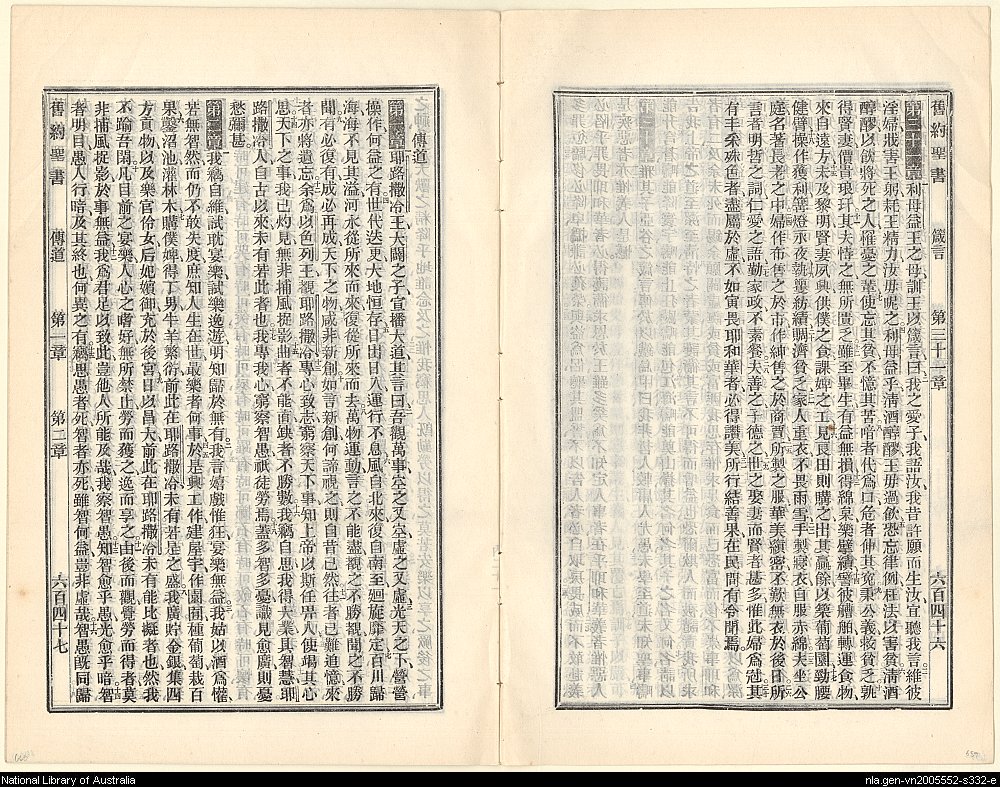 舊約聖書 箴言 第三十一章 六百四十六
第三十一章利母益王之母訓王以箴言曰我之愛子我語汝我昔許願而生汝宜聽我言維彼
淫婦戕害王躬耗王精力汝毋昵之利母益乎清酒醇醪王毋過飲恐忘律例枉法以害貧清酒
醇醪以飲將死之人罹憂之輩使忘其貧不憶其苦喑者代爲口危者伸其冤秉公義救貧乏孰
得賢妻價貴琅玕其夫恃之無所匱乏雖至畢生有益無損得綿枲樂 績譬彼艚舶轉運食物
來自遠方未及黎明賢妻夙興供僕之食課婢之工見良田則購之出其贏餘以築葡萄園勁腰
健臂操作獲利篝燈永夜執 紡績賙濟貧乏家人重衣不畏雨雪手製寢衣自服赤綿夫坐公
庭名著長老之中婦作布售之於市作紳售之於商賈所製之服華美縝密不歎無衣於後日所
言者明哲之詞仁愛之語勤家政不素餐夫善之子德之世之娶妻而賢者甚多惟此婦爲冠其
有手柔姝色者盡屬於虛不如寅畏耶和華者必得讚美所行結善果在民間有令聞焉
傳道
第一章耶路撒冷王大闢之子宣播大道其言曰吾觀萬事空之又空虛之又虛光天之下營營
操作何益之有世代迭更大地恒存日出日入運行不息風自北來復自南至迴旋靡定百川歸
海海不見其溢河水從所來而來復從所來而去萬物運動言之不能盡視之不勝觀聞之不勝
聞有必復有成必再成天下之物咸非新創如言新創何不諦視之則自昔已然往者已難追憶來
者亦將遺忘余爲以色列王視耶路撒冷專心致志窮察天下事知上帝以斯任畀人使竭其心
思天下之事我已灼見無非捕風捉影曲者不能直缺者不勝數我竊自思我得大業具智慧耶
路撒冷人自古以來未有若此者也我專我心窮察智愚祇徒勞焉蓋多智多憂識見愈廣則憂
愁彌甚
第二章我竊自維試耽宴樂試樂逸遊明知歸於無有我言嬉戲惟狂宴樂無益我姑以酒爲懽
若無智然而仍不敢失度庶知人生在世最樂者何事於是興工作建屋宇作園囿種葡萄栽百
果鑿沼池灌林木購僕婢得丁男牛羊繁衍前此在耶路撒冷未有若是之盛我廣貯金銀集四
方貢物以及樂官伶女后妃嬪御充於後宮日以昌大前此在耶路撒冷未有能比擬者也然我
不踰吾閑凡目前之宴樂人心之嗜好無所禁止勞而獲之逸而享之由後而觀覺勞而得者莫
非捕風捉影於事無益我爲君足以致此豈他人所能及哉我察智愚知智愈乎愚光愈乎暗智
者明目愚人行暗及其終也何異之有竊思愚者死智者亦死雖智何益豈非虛哉智愚旣同歸
舊約聖書 傳道 第一章 第二章 六百四十七
National Library of Australia
nla.gen-vn2005552-s332-e